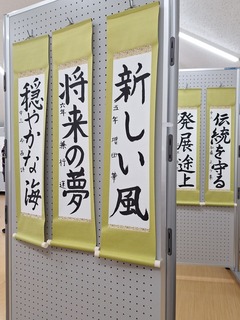 新しい風
五年
将来の夢
六年
穏やかな海
伝統を守る
発展途上